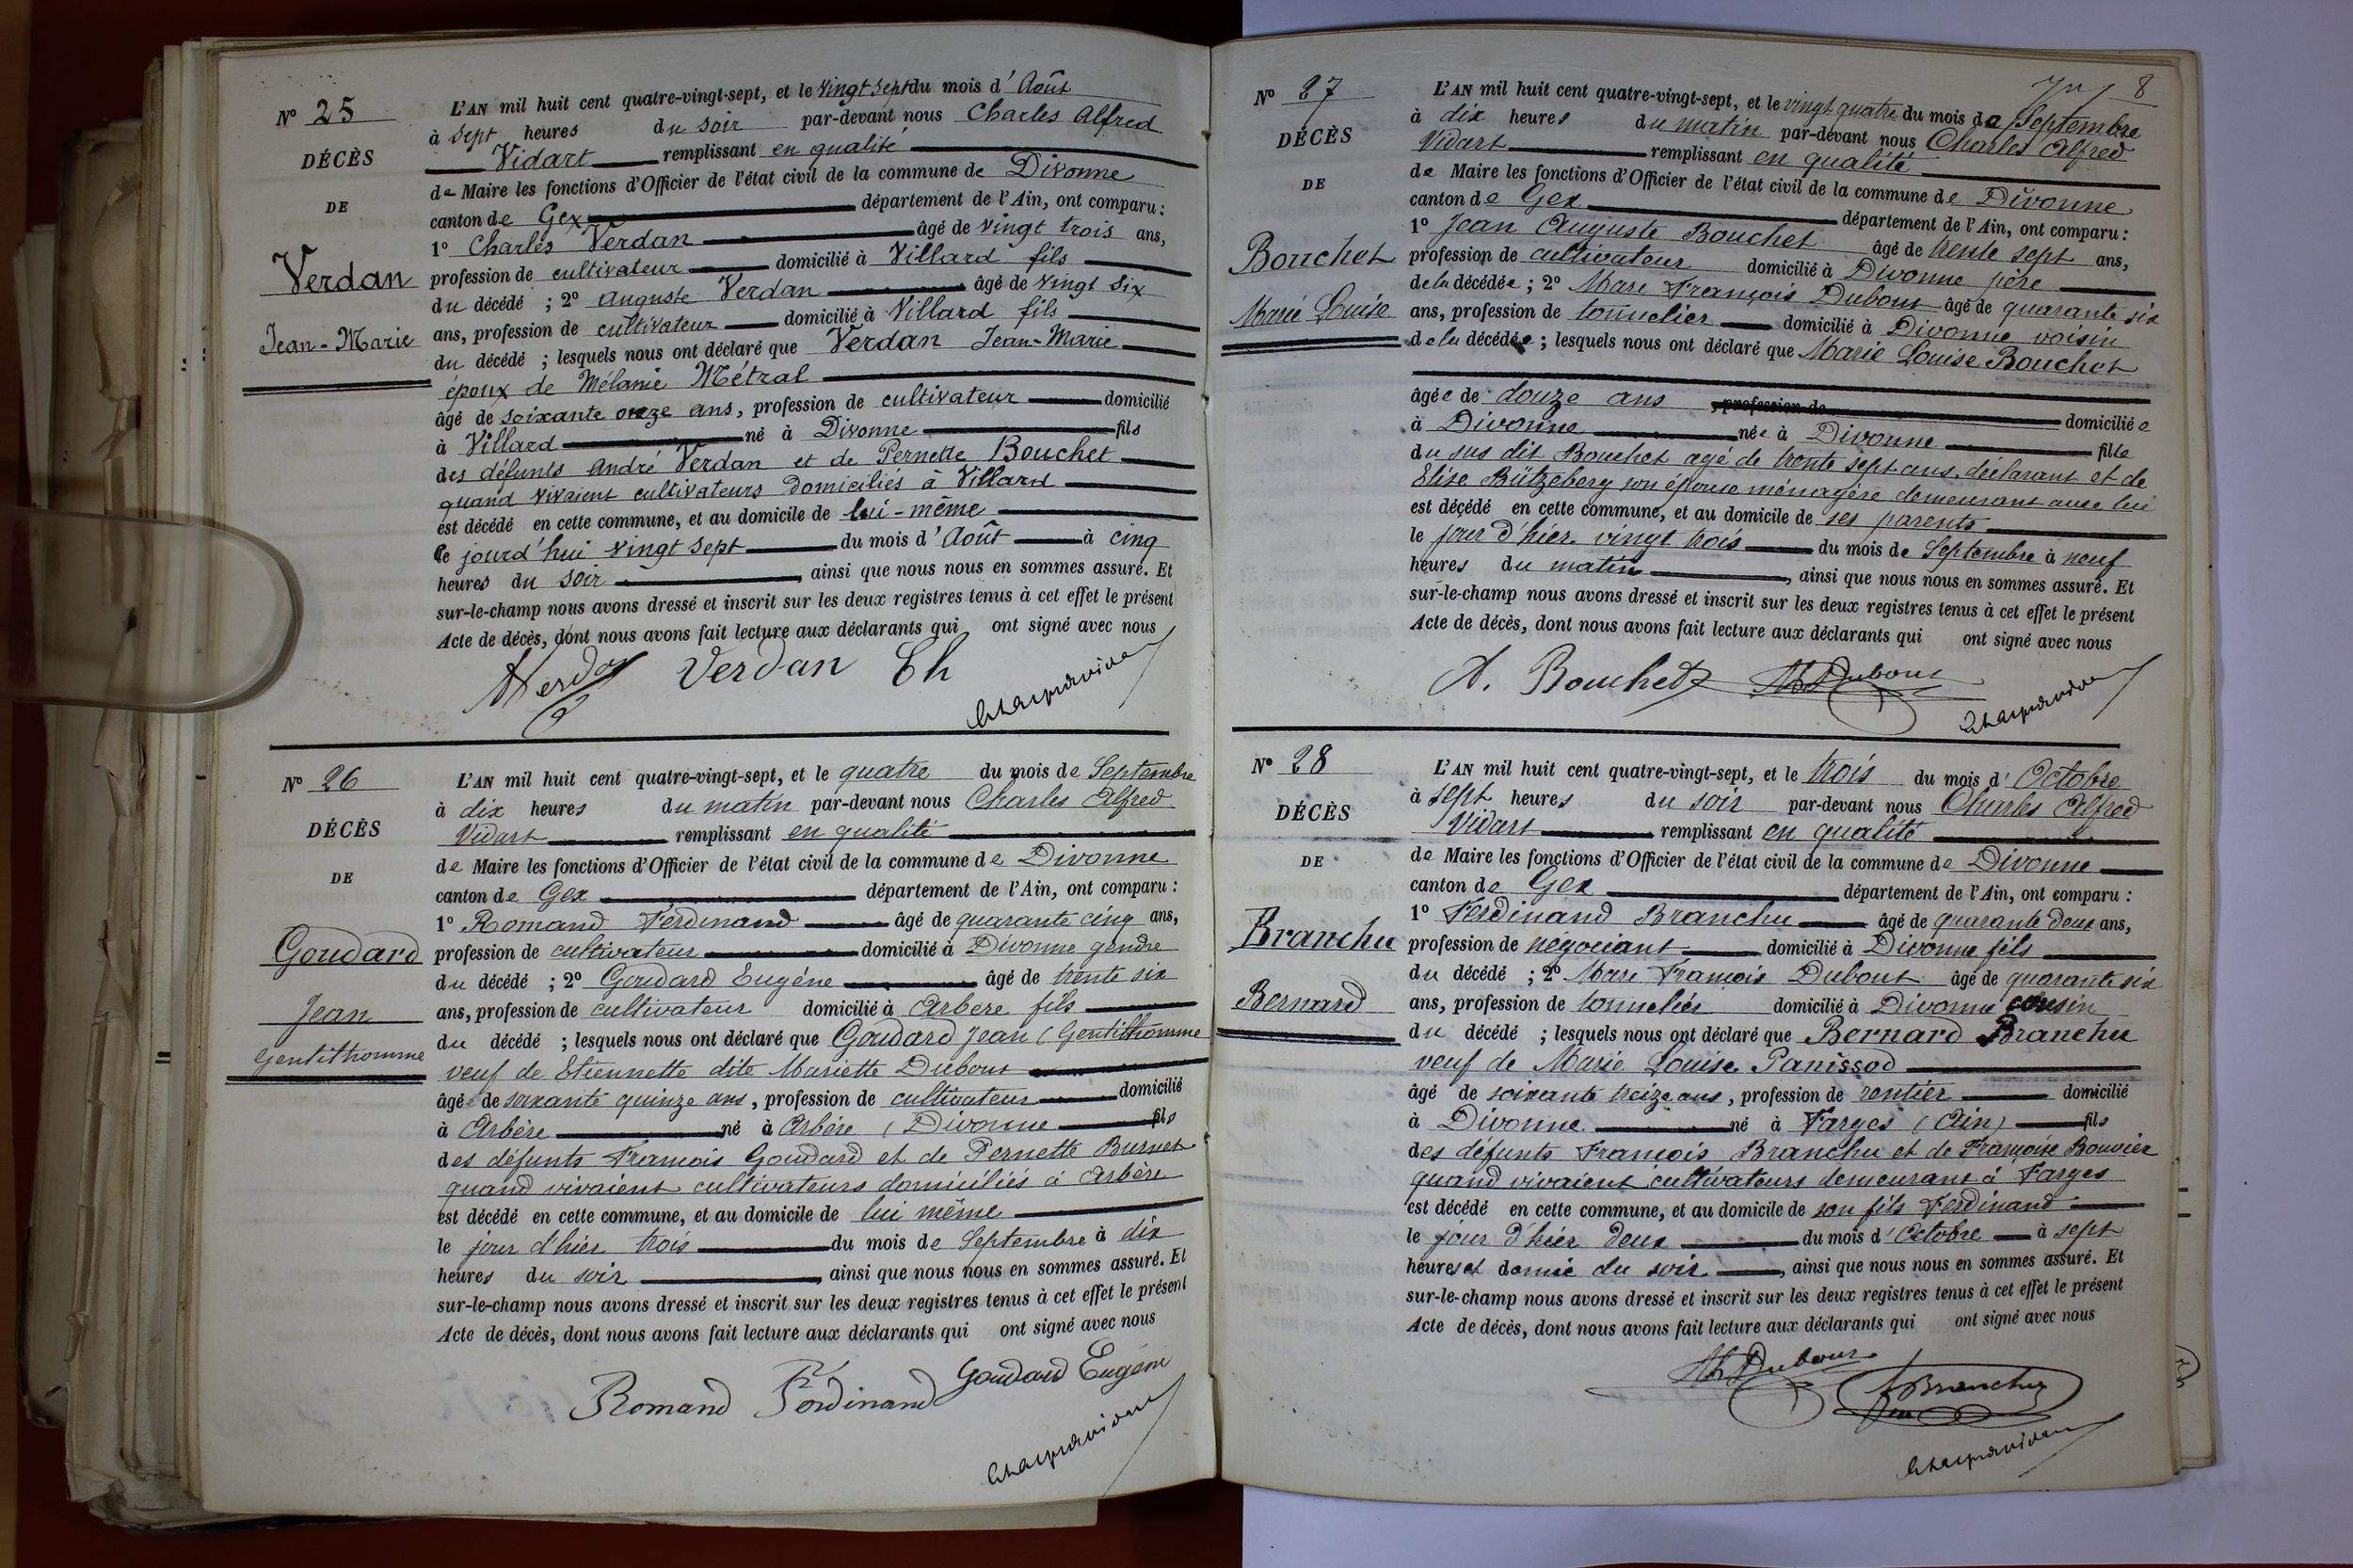 N° 25
DÉCÈS
DE
Verdan
Jean-Marie
L'AN mil huit cent quatre-vingt-sept, et le vingt sept du mois d'Août
à sept heures du soir par-devant nous Charles Alfred
Vidart remplissant en qualité
de Maire les fonctions d'Officier de l'état civil de la commune de Divonne
canton de Gex département de l'Ain, ont comparu :
1° Charles Verdan âgé de vingt trois ans,
profession de cultivateur domicilié à Villard fils
du décédé ; 2° Auguste Verdan âgé de vingt six
ans, profession de cultivateur domicilié à Villard fils
du décédé ; lesquels nous ont déclaré que Verdan Jean-Marie
époux de Mélanie Métral
âgé de soixante onze ans, profession de cultivateur domicilié
à Villard né à Divonne fils
des défunts André Verdan et de Pernette Bouchet
quand vivaient cultivateurs domiciliés à Villard
est décédé en cette commune, et au domicile de lui-même
ce jourd'hui vingt sept du mois d'Août à cinq
heures du soir, ainsi que nous nous en sommes assuré. Et
sur-le-champ nous avons dressé et inscrit sur les deux registres tenus à cet effet le présent
Acte de décès, dont nous avons fait lecture aux déclarants qui ont signé avec nous
Verdan Ch
N° 26
DÉCÈS
DE
Goudard
Jean
Gentithomme
L'AN mil huit cent quatre-vingt-sept, et le quatre du mois de Septembre
à dix heures du matin par-devant nous Charles Alfred
Vidart remplissant en qualité
de Maire les fonctions d'Officier de l'état civil de la commune de Divonne
canton de Gex département de l'Ain, ont comparu :
1° Romand Ferdinand âgé de quarante cinq ans,
profession de cultivateur domicilié à Divonne gendre
du décédé ; 2° Goudard Eugène âgé de trente six
ans, profession de cultivateur domicilié à Arbère fils
du décédé ; lesquels nous ont déclaré que Goudard Jean (Gentilhomme
veuf de Etiennette dite Mariette Dubout
âgé de soixante quinze ans, profession de cultivateur domicilié
à Arbère né à Arbère (Divonne fils
des défunts François Goudard et de Pernette Burnet
quand vivaient cultivateurs domiciliés à Arbère
est décédé en cette commune, et au domicile de lui même
le jour d'hier trois du mois de Septembre à dix
heures du soir, ainsi que nous nous en sommes assuré. Et
sur-le-champ nous avons dressé et inscrit sur les deux registres tenus à cet effet le présent
Acte de décès, dont nous avons fait lecture aux déclarants qui ont signé avec nous
Romand Ferdinand Goudard Eugène
8
N° 27
DÉCÈS
DE
Bouchet
Marie Louise
L'AN mil huit cent quatre-vingt-sept, et le vingt quatre du mois de Septembre
à dix heures du matin par-devant nous Charles Alfred
Vidart remplissant en qualité
de Maire les fonctions d'Officier de l'état civil de la commune de Divonne
canton de Gex département de l'Ain, ont comparu :
1° Jean Auguste Bouchet âgé de trente sept ans,
profession de cultivateur domicilié à Divonne père
de la décédée ; 2° Marc François Dubout âgé de quarante six
ans, profession de tonnelier domicilié à Divonne voisin
de la décédée ; lesquels nous ont déclaré que Marie Louise Bouchet
âgée de douze ans, profession de domiciliée
à Divonne née à Divonne fille
du sus dit Bouchet agé de trente sept ans, déclarant et de
Elise Bützeberg son épouse ménagère demeurant avec lui
est décédé en cette commune, et au domicile de ses parents
le jour d'hier vingt trois du mois de Septembre à neuf
heures du matin, ainsi que nous nous en sommes assuré. Et
sur-le-champ nous avons dressé et inscrit sur les deux registres tenus à cet effet le présent
Acte de décès, dont nous avons fait lecture aux déclarants qui ont signé avec nous
A. Bouchet Dubout
N° 28
DÉCÈS
DE
Branchu
Bernard
L'AN mil huit cent quatre-vingt-sept, et le trois du mois d'Octobre
à sept heures du soir par-devant nous Charles Alfred
Vidart remplissant en qualité
de Maire les fonctions d'Officier de l'état civil de la commune de Divonne
canton de Gex département de l'Ain, ont comparu :
1° Ferdinand Branchu âgé de quarante deux ans,
profession de négociant domicilié à Divonne fils
du décédé ; 2° Marc François Dubout âgé de quarante six
ans, profession de tonnelier domicilié à Divonne cousin
du décédé ; lesquels nous ont déclaré que Bernard Branchu
veuf de Marie Louise Panissod
âgé de soixante treize ans, profession de rentier domicilié
à Divonne né à Farges (Ain) fils
des défunts François Branchu et de Françoise Bouvier
quand vivaient cultivateurs demeurant à Farges
est décédé en cette commune, et au domicile de son fils Ferdinand
le jour d'hier deux du mois d'Octobre à sept
heures et demie du soir, ainsi que nous nous en sommes assuré. Et
sur-le-champ nous avons dressé et inscrit sur les deux registres tenus à cet effet le présent
Acte de décès, dont nous avons fait lecture aux déclarants qui ont signé avec nous
Dubout
Branchu